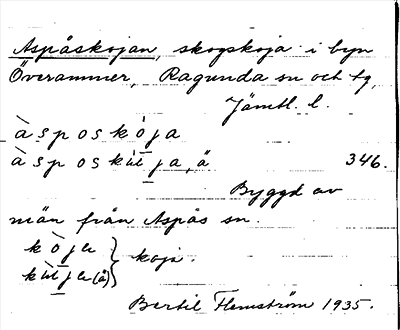 Aspåskojan, skogskoja i byn
Överammer, Ragunda sn och tg,
Jämtl. l.
à s p o s k ȯ j a
346.
Byggd av
män från Aspås sn.
koja.
Bertil Flemström 1935.